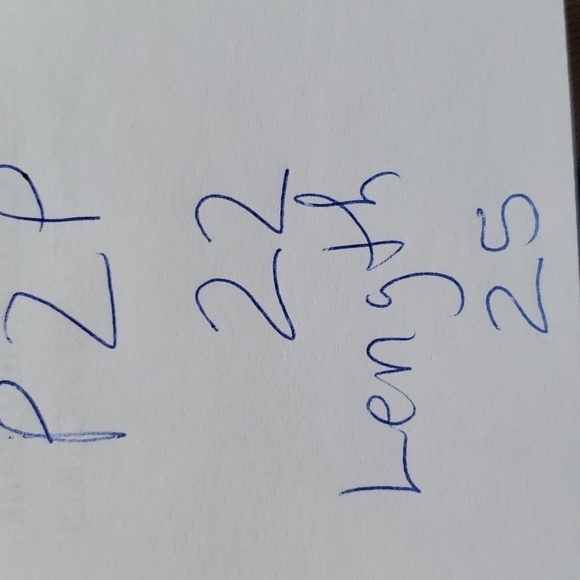 P2P
22
Length
25